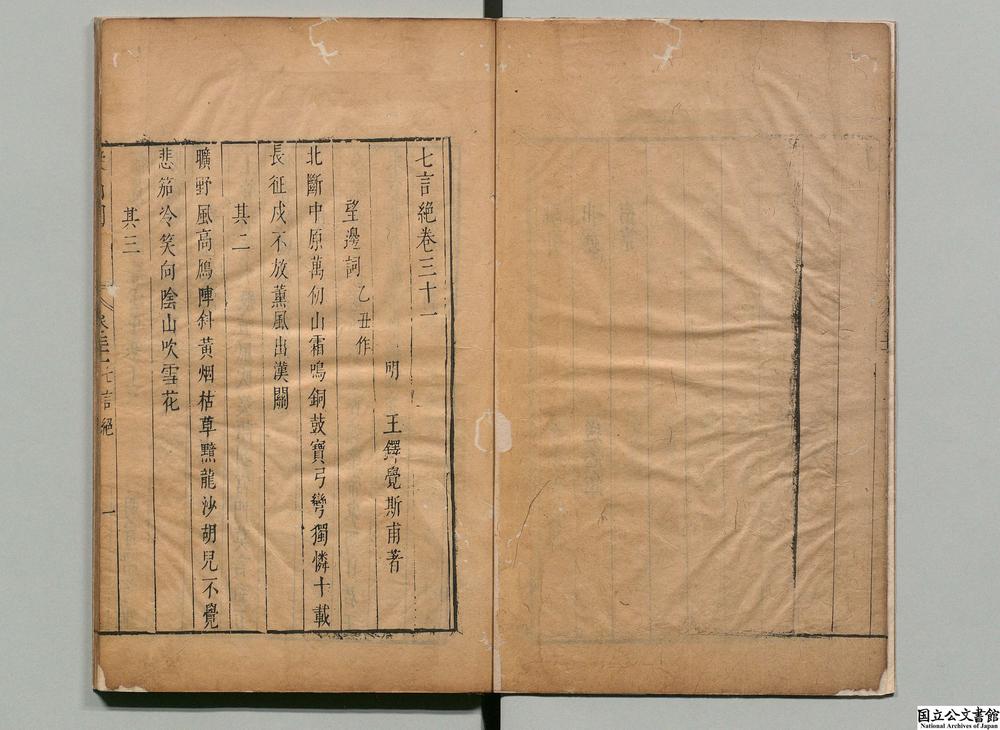 七言絶卷三十一
明 王鐸覺斯甫著
望邊詞 乙丑作
北斷中原萬仞山霜鳴銅鼓寶弓彎獨憐十載
長征戍不放薰風出漢關
其二
曠野風高鴈陣斜黃烟枯草黯龍沙胡兒不覺
悲笳冷笑向陰山吹雪花
其三
卷三十一 七言絶 一
国立公文書館
National Archives of Japan